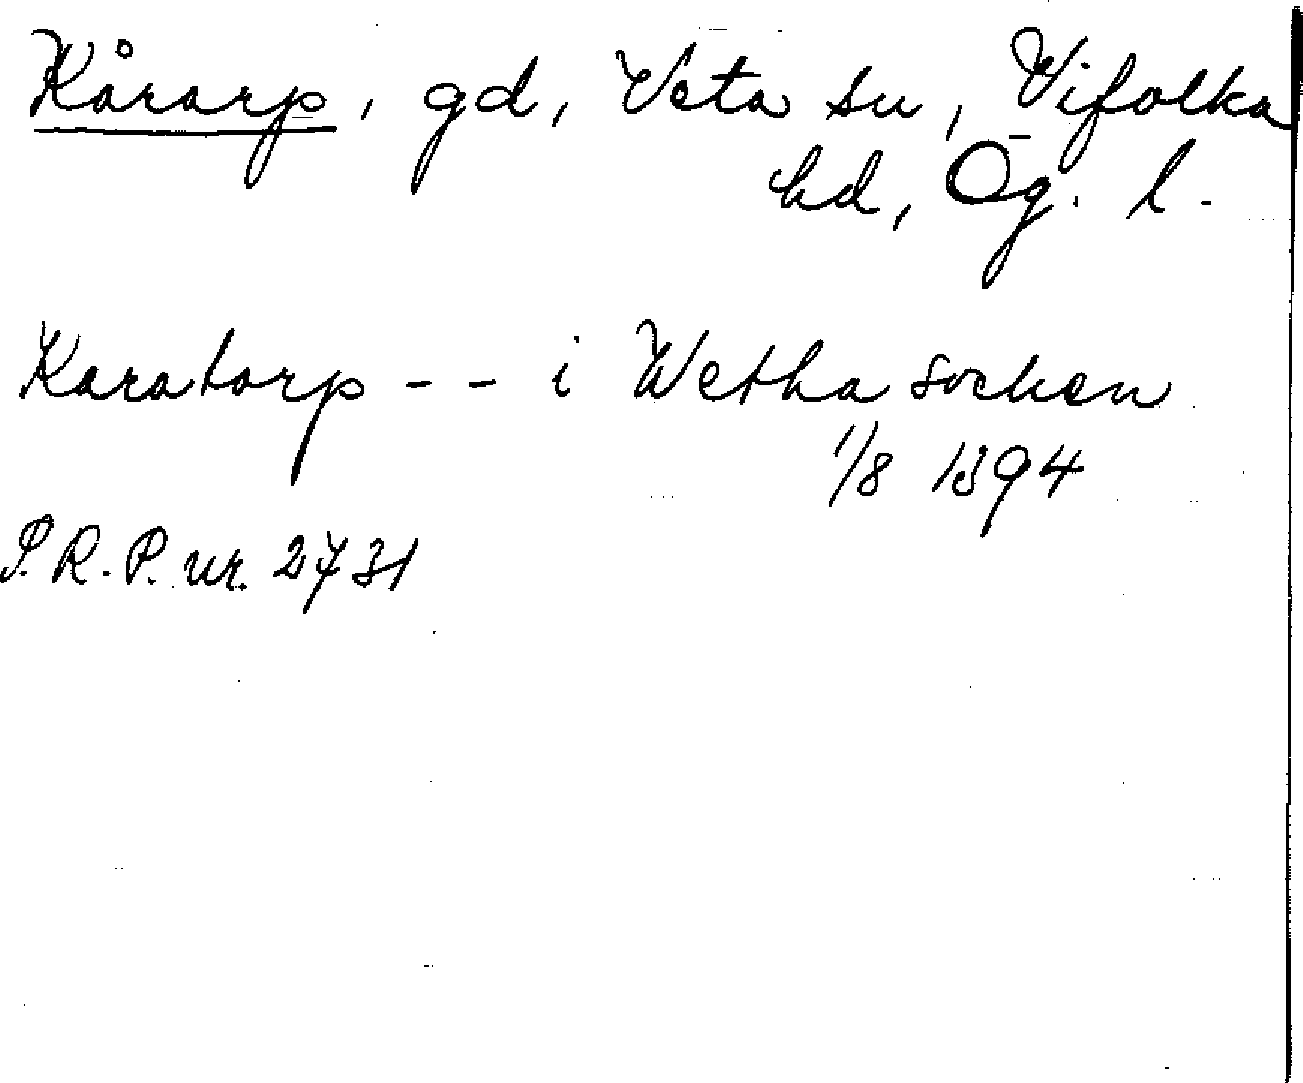 Kårarp, gd, Veta sn, Vifolka
hd, Ög. l.
Karatorp - - i Wetha socken
1/8 1394
P.R.P. nr. 2731